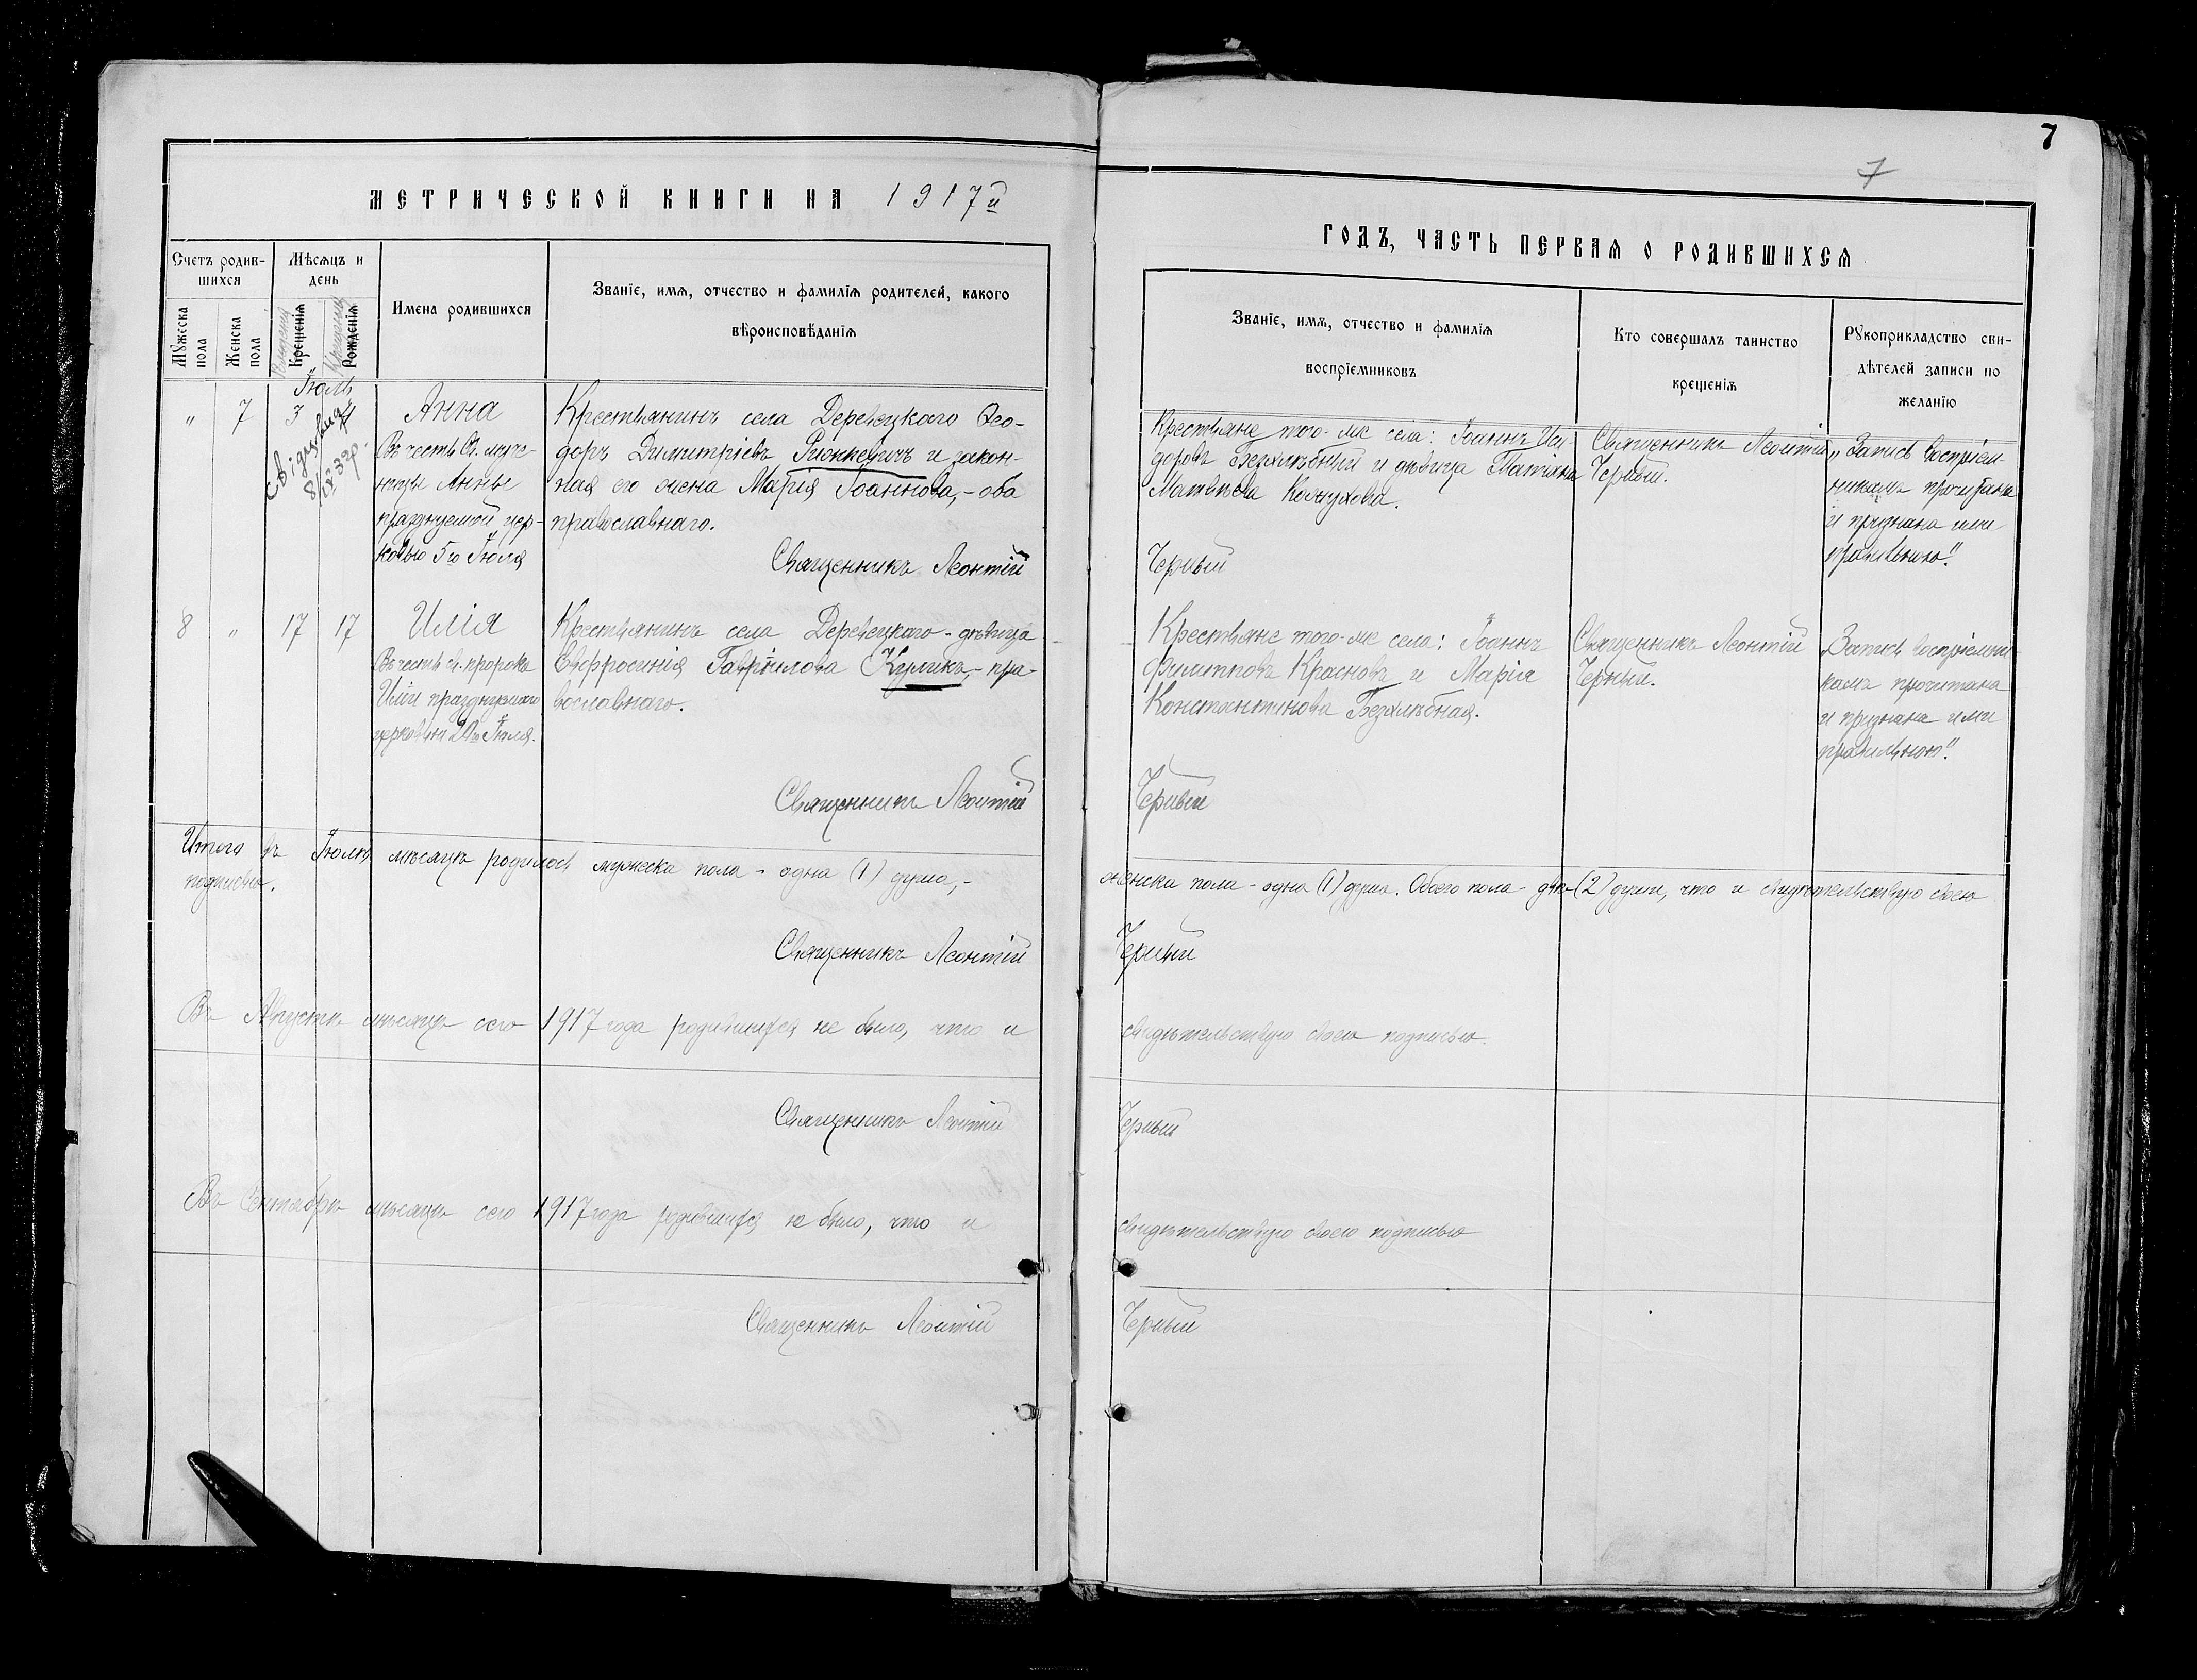 7
7
МЕТРИЧЕСКОЙ КНИГИ НА 1917й
ГОДЪ, ЧАСТЬ ПЕРВАЯ О РОДИВШИХСЯ
Счетъ родив-
шихся
Мужеска пола
Женска пола
Мѣсяцъ и
день
Крещенія
Рожденія
Имена родившихся
Званіе, имя, отчество и фамилія родителей, какого
вѣроисповѣданія
Званіе, имя, отчество и фамилія
воспріемниковъ
Кто совершалъ таинство
крещенія
Рукоприкладство сви-
дѣтелей записи по
желанію
Іюль
" 7 3
Анна
Въ честь Св. муче-
ницы Анны
празднуемой цер-
ковью 5го Іюля
Крестьянинъ села Деревецкаго Ѳео-
доръ Димитріевъ и закон-
ная его жена Марія Іоаннова, - оба
православнаго.
Священникъ Леонтій
Крестьяне того-же села: Іоаннъ Иси-
доровъ Безхлѣбный и дѣвица Татіана
Матвѣева
Черный
Священникъ Леонтій
Черный.
"Запись воспріем-
никамъ прочитана
и признана ими
правильною".
8 " 17 17
Илія
Въ честь св. пророка
Иліи празднуемаго
церковью 20го Іюля.
Крестьянинъ села Деревецкаго - дѣвица
Евфросинія Гавріилова Куликъ, - пра-
вославнаго.
Священникъ Леонтій
Крестьяне того-же села: Іоаннъ
Филипповъ Красновъ и Марія
Константинова Безхлѣбная.
Черный
Священникъ Леонтій
Черный.
"Запись воспріемни-
камъ прочитана
и признана ими
правильною".
Итого въ Іюлѣ мѣсяцѣ родилось мужеска пола - одна (1) душа, -
женска пола - одна (1) душа. Обоего пола - двѣ (2) души, что и свидѣтельствую своею
подписью.
Священникъ Леонтій
Черный
Въ Августѣ мѣсяцѣ сего 1917 года родившихся не было, что и
свидѣтельствую своею подписью.
Священникъ Леонтій
Черный
Въ Сентябрѣ мѣсяцѣ сего 1917 года родившихся не было, что и
свидѣтельствую своею подписью
Священникъ Леонтій
Черный